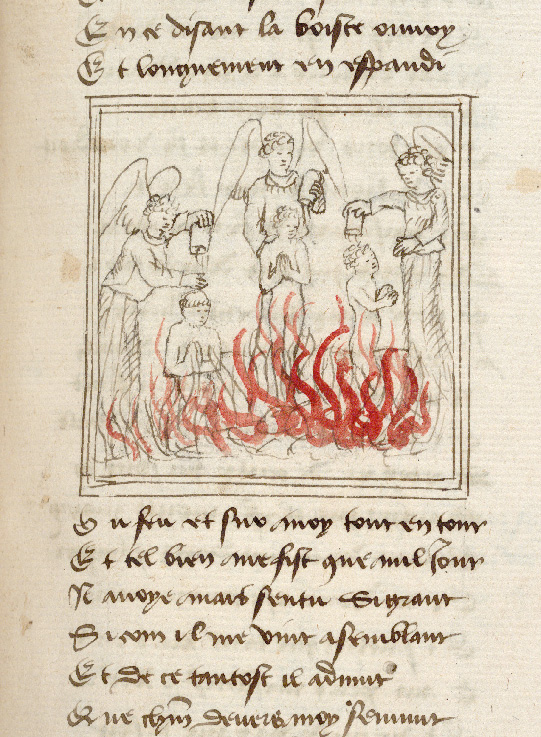 En ce disant la boiste ouuroy
Et longuement en espandi
Du feu et sur moy tout entour
Et tel bien me fist que nul Jour
N auoye mais sentu Si grant
Si com il me vint a semblant
Et de ce tantost il aduint
Que chm̄ deuers moy Reuint